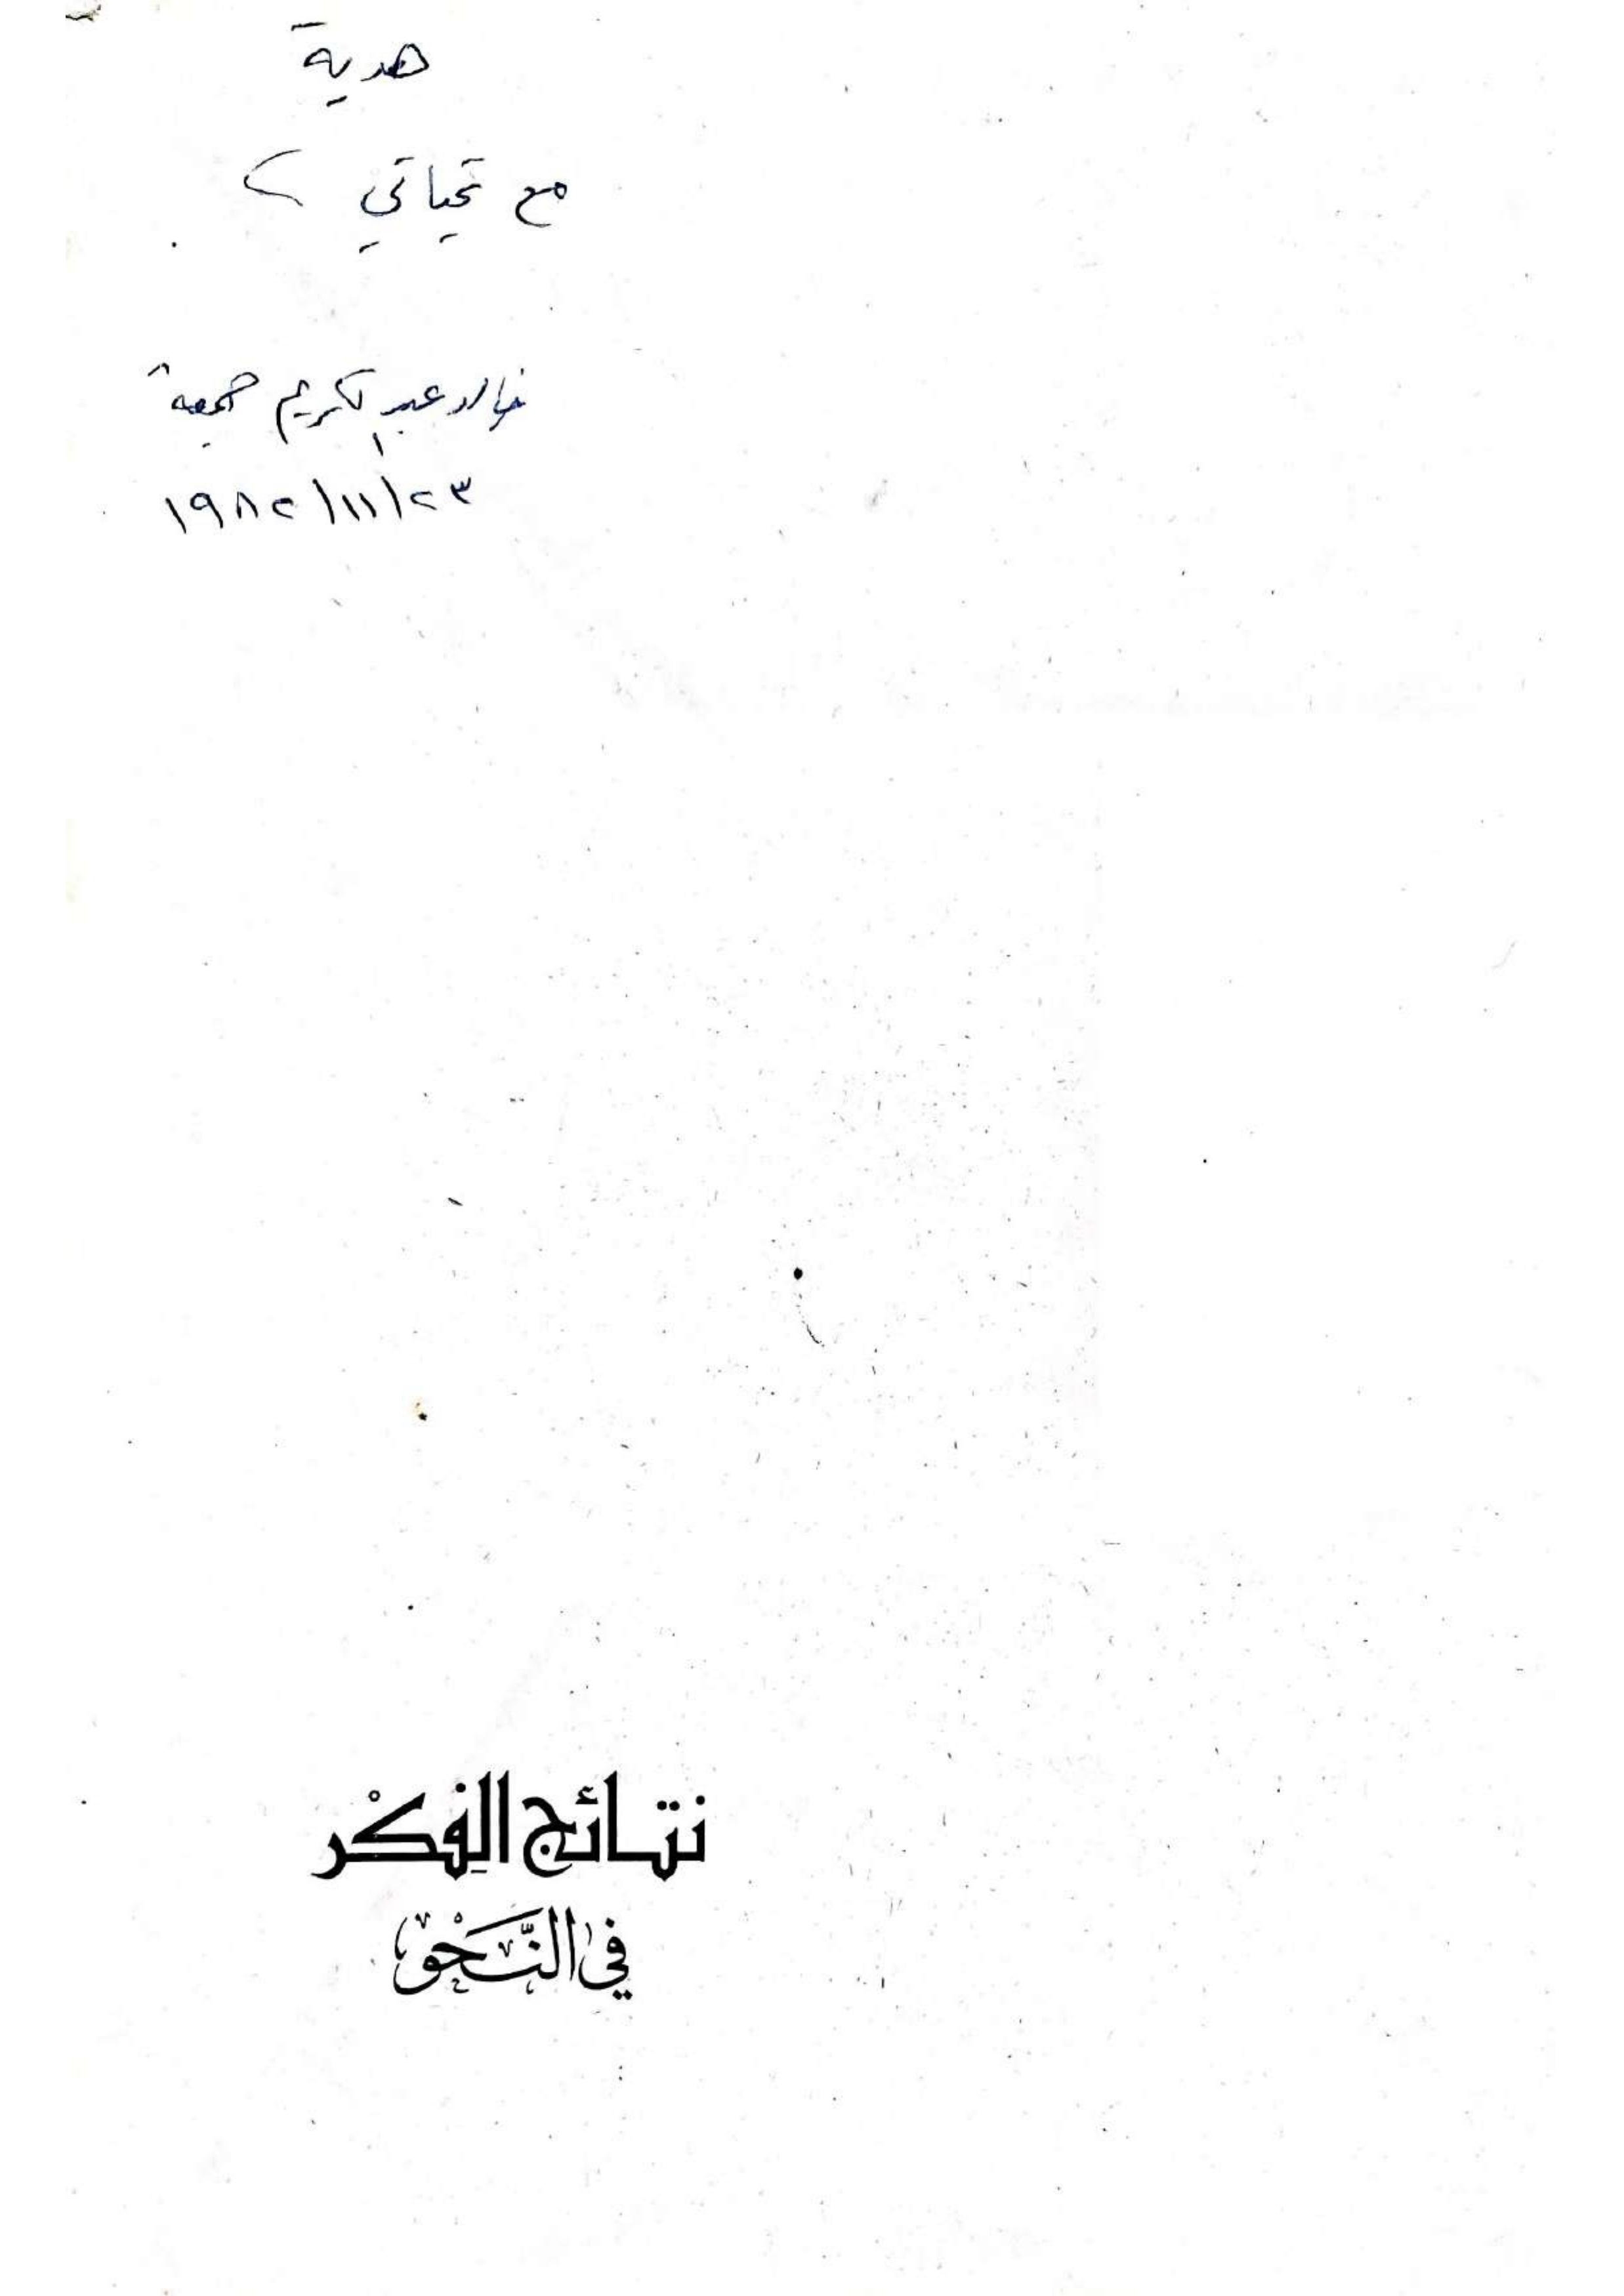 هدية
مع تحياتي
خالد عبد الكريم جمعة
٢٣/١١/١٩٨٢
نتائج الفِكْر
في النَّحْو